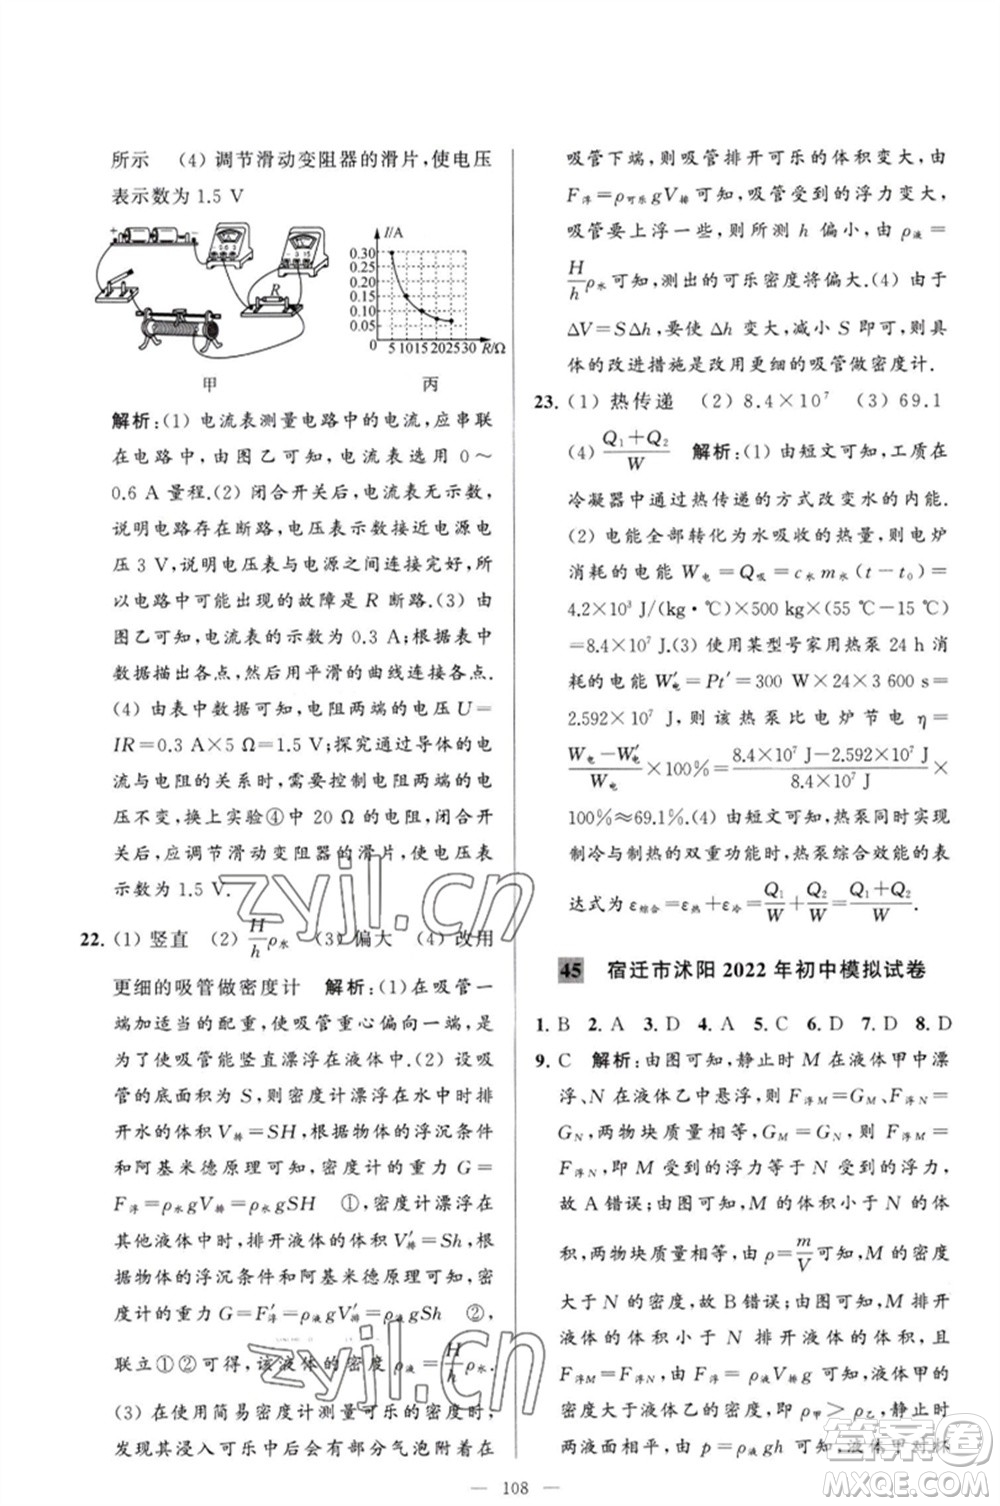 所示　(4) 调节滑动变阻器的滑片,使电压
表示数为 1.5 V
I/A
0.30
0.25
0.20
0.15
0.10
0.05
0
5 10 15 20 25 30 R/Ω
R
甲　丙
解析:(1) 电流表测量电路中的电流,应串联
在电路中,由图乙可知,电流表选用 0～
0.6 A 量程.(2) 闭合开关后,电流表无示数,
说明电路存在断路,电压表示数接近电源电
压 3 V,说明电压表与电源之间连接完好,所
以电路中可能出现的故障是 R 断路.(3) 由
图乙可知,电流表的示数为 0.3 A;根据表中
数据描出各点,然后用平滑的曲线连接各点.
(4) 由表中数据可知,电阻两端的电压 U=
IR=0.3 A×5 Ω=1.5 V;探究通过导体的电
流与电阻的关系时,需要控制电阻两端的电
压不变,将实验④中 20 Ω 的电阻,闭合开
关后,应调节滑动变阻器的滑片,使电压表
示数为 1.5 V.
22. (1) 竖直　(2) H/h ρ水　(3) 偏大　(4) 改用
更细的吸管做密度计　解析:(1) 吸管在一
端加适当的配重,使吸管重心偏向一端,是
为了使吸管能竖直漂浮在液体中.(2) 设吸
管的底面积为 S,则密度计漂浮在水中时排
开水的体积 V排=SH,根据物体的浮沉条件
和阿基米德原理可知,密度计的重力 G=
F浮=ρ水gV排=ρ水gSH　①,密度计漂浮在
其他液体中时,排开液体的体积 V′排=Sh,根
据物体的浮沉条件和阿基米德原理可知,密
度计的重力 G=F′浮=ρ液gV′排=ρ液gSh　②,
联立①②可得,该液体的密度 ρ液=H/h ρ水.
(3) 在使用简易密度计测量可乐的密度时,
发现其浸入可乐中后会有部分气泡附着在
吸管下端,则吸管排开可乐的体积变大,由
F浮=ρ可乐gV排可知,吸管受到的浮力变大,
吸管要上浮一些,则所测 h 偏小,由 ρ液=
H/h ρ水可知,测出的可乐密度将偏大.(4) 由于
ΔV=SΔh,要使 Δh 变大,减小 S 即可,则具
体的改进措施是改用更细的吸管做密度计.
23. (1) 热传递　(2) 8.4×10⁷　(3) 69.1
(4) (Q₁+Q₂)/W　解析:(1) 由短文可知,工质在
冷凝器中通过热传递的方式改变水的内能.
(2) 电能全部转化为水吸收的热量,则电炉
消耗的电能 W电=Q吸=c水m水(t-t₀)=
4.2×10³ J/(kg·℃)×500 kg×(55 ℃-15 ℃)
=8.4×10⁷ J.(3) 使用某型号家用热泵 24 h 消
耗的电能 W′电=Pt′=300 W×24×3 600 s=
2.592×10⁷ J,则该热泵比电炉节电 η=
(W电-W′电)/W电×100%=(8.4×10⁷ J-2.592×10⁷ J)/(8.4×10⁷ J)×
100%≈69.1%.(4) 由短文可知,热泵同时实现
制冷与制热的双重功能时,热泵综合效能的表
达式为 ε综合=ε热+ε冷=Q₁/W+Q₂/W=(Q₁+Q₂)/W.
45　宿迁市沭阳 2022 年初中模拟试卷
1. B　2. A　3. D　4. A　5. C　6. D　7. D　8. D
9. C　解析:由图可知,静止时 M 在液体甲中漂
浮、N 在液体乙中悬浮,则 F浮M=GM、F浮N=
GN,两物块质量相等,GM=GN,则 F浮M=
F浮N,即 M 受到的浮力等于 N 受到的浮力,
故 A 错误;由图可知,M 的体积小于 N 的体
积,两物块质量相等,由 ρ=m/V可知,M 的密度
大于 N 的密度,故 B 错误;由图可知,M 排开
液体的体积小于 N 排开液体的体积,又
F浮M=F浮N,由 F浮=ρ液gV排可知,液体甲的密
度大于液体乙的密度,即 ρ甲>ρ乙,由于
两液面相平,由 p=ρ液gh 可知,液体甲对杯
108
zyjl.cn
zyjl.cn
答案圈
MXQE.COM